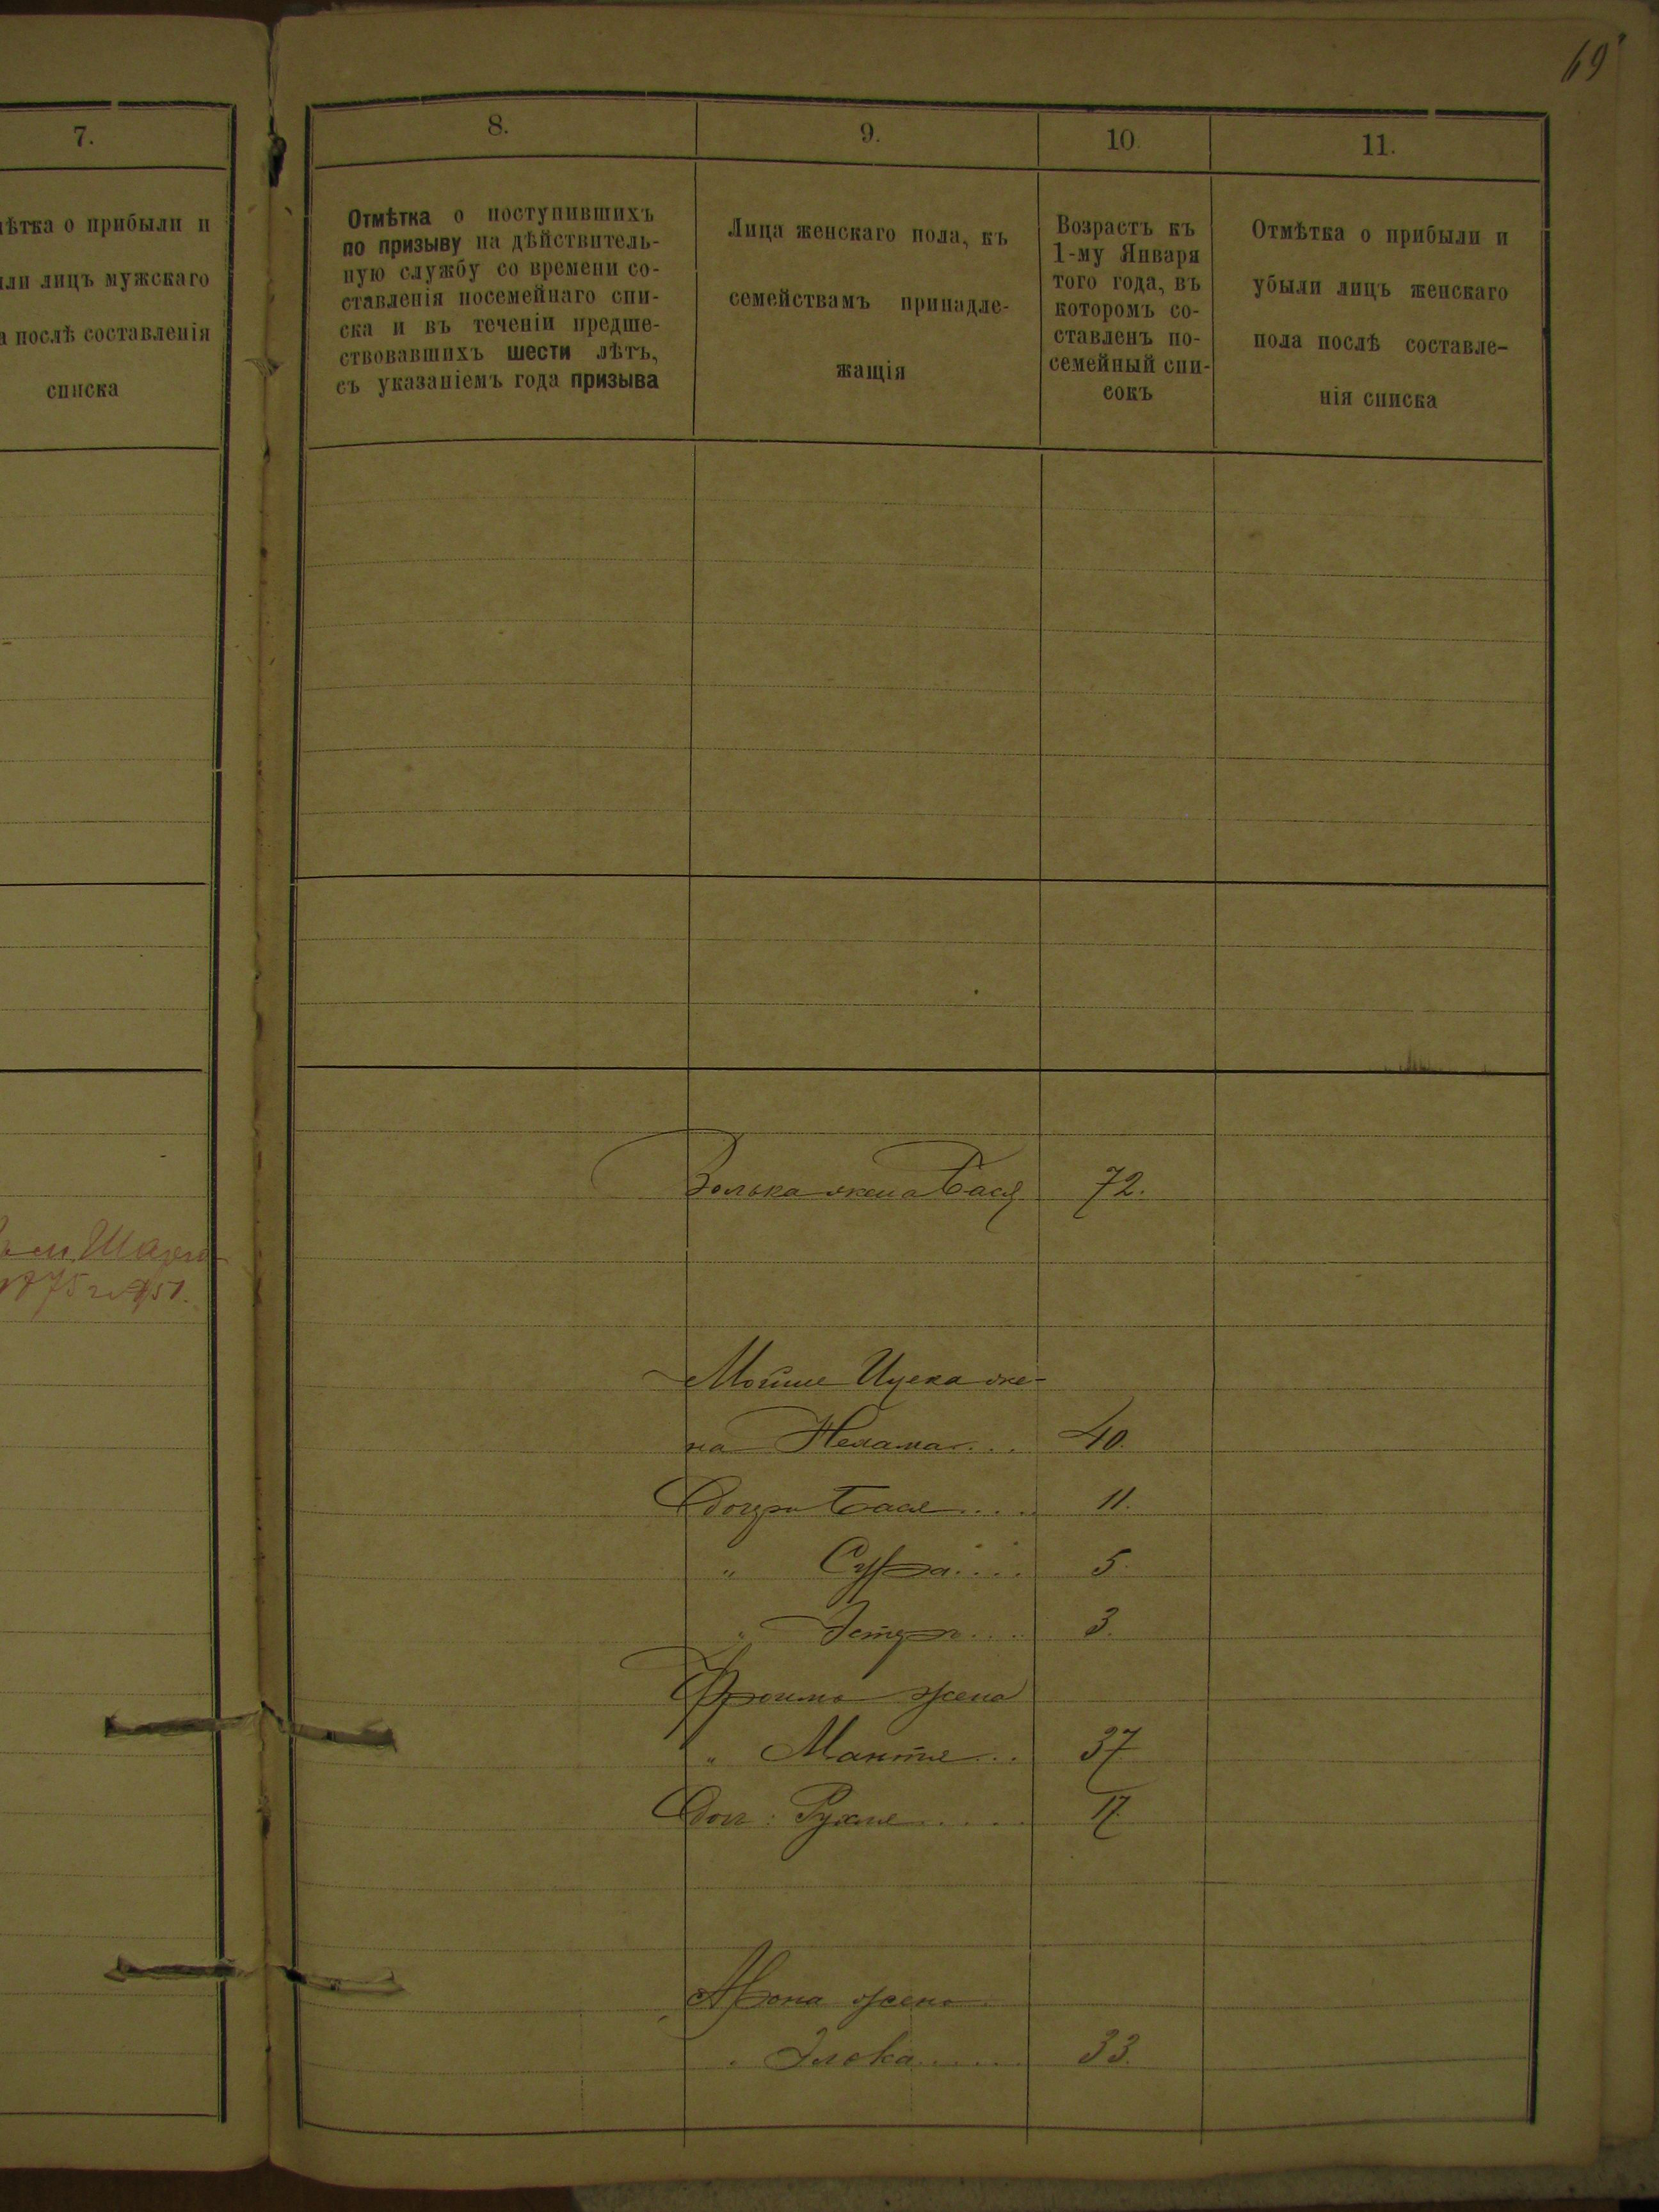 69
7.
ѣтка о прибыли и
ли лицъ мужскаго
а послѣ составленія
списка
1875 г. №51.
8.
9.
10.
11.
Отмѣтка о поступившихъ
по призыву на дѣйствитель-
ную службу со времени со-
ставленія посемейнаго спи-
ска и въ теченіи предше-
ствовавшихъ шести лѣтъ,
съ указаніемъ года призыва
Лица женскаго пола, къ
семействамъ принадле-
жащія
Возрастъ къ
1-му Января
того года, въ
которомъ со-
ставленъ по-
семейный спи-
сокъ
Отмѣтка о прибыли и
убыли лицъ женскаго
пола послѣ составле-
нія списка
Золька жена Бася 72.
Мойше Ицека же-
на Нехама... 40.
Дочери Бася.... 11.
" Сура.... 5.
" Эстеръ.... 3.
Фроима жена
" 37
Доч: Рухля..... 17.
Арона жена
" Элька..... 33.